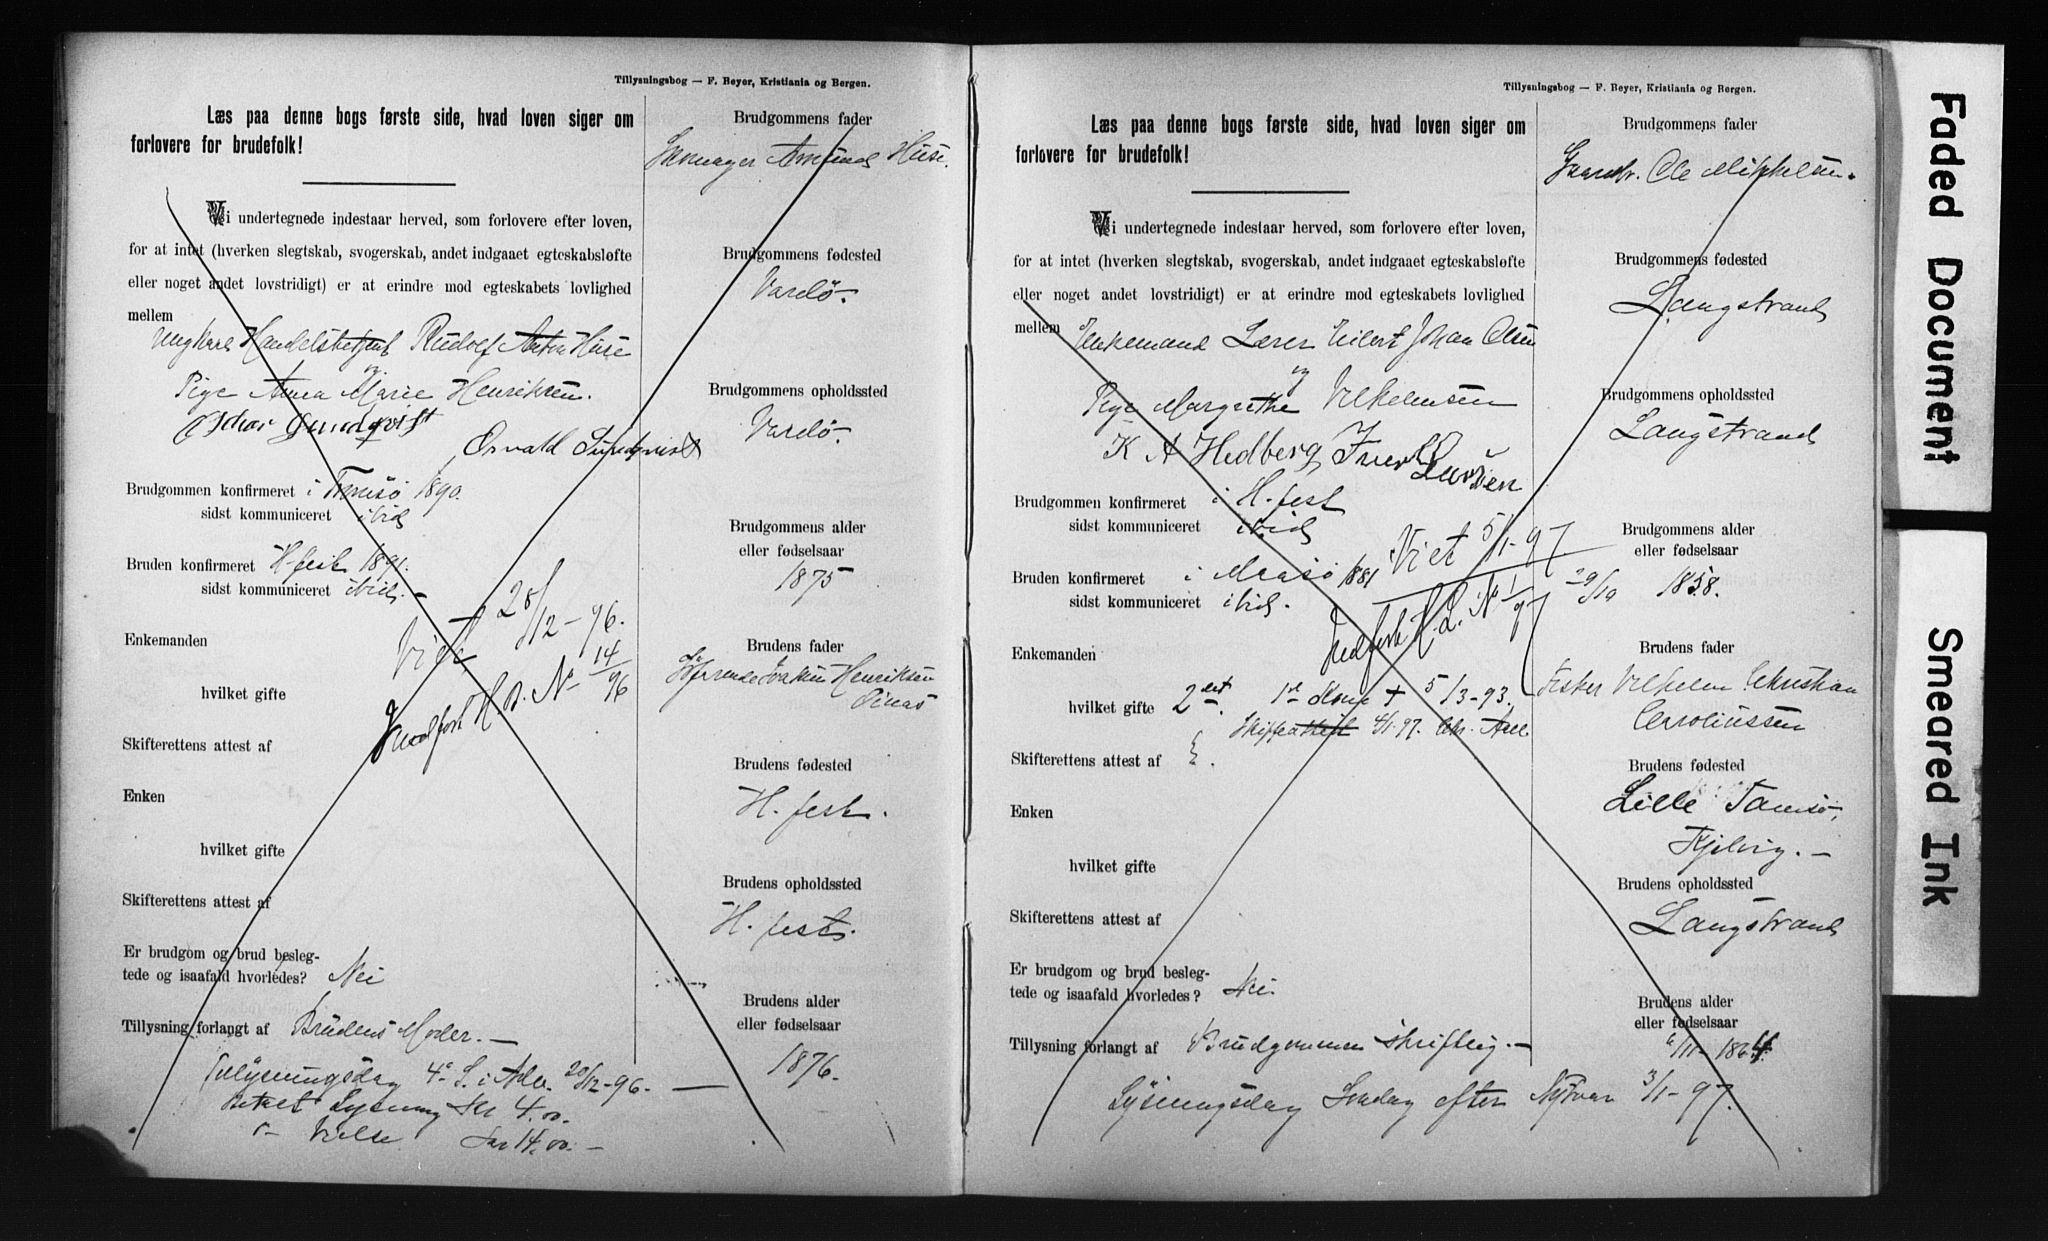 Tillysningsbog — F. Beyer, Kristiania og Bergen.
Læs paa denne bogs første side, hvad loven siger om
forlovere for brudefolk!
Vi undertegnede indestaar herved, som forlovere efter loven,
for at intet (hverken slegtskab, svogerskab, andet indgaaet egteskabsløfte
eller noget andet lovstridigt) er at erindre mod egteskabets lovlighed
mellem
Ungkarl Handelsbetjent Rudolf Anton Huse
og
Pige Anna Marie Henriksen.
Oskar Sundqvist
Osvald Sundqvist
Brudgommen konfirmeret i Tromsø 1890.
sidst kommuniceret ibid
Bruden konfirmeret H.fest 1891.
sidst kommuniceret ibid. —
Viet 28/12-96.
Indført H.B. No 14/96
Enkemanden
hvilket gifte
Skifterettens attest af
Enken
hvilket gifte
Skifterettens attest af
Er brudgom og brud besleg-
tede og isaafald hvorledes? Nei
Tillysning forlangt af Brudens Moder. —
Tillysningsdag 4e S. i Adv. 20/12-96. —
Betalt Lysning Kr 4.00.
" — Vielse Kr 14.00. —
Brudgommens fader
Amund Huse.
Brudgommens fødested
Vardø.
Brudgommens opholdssted
Vardø.
Brudgommens alder
eller fødselsaar
1875
Brudens fader
Henriksen
Brudens fødested
H.fest.
Brudens opholdssted
H.fest.
Brudens alder
eller fødselsaar
1876.
Tillysningsbog — F. Beyer, Kristiania og Bergen.
Læs paa denne bogs første side, hvad loven siger om
forlovere for brudefolk!
Vi undertegnede indestaar herved, som forlovere efter loven,
for at intet (hverken slegtskab, svogerskab, andet indgaaet egteskabsløfte
eller noget andet lovstridigt) er at erindre mod egteskabets lovlighed
mellem
Enkemand Lærer Eilert Johan Olsen
og
Pige Margrethe Vilhelmsen
K A Hedberg Iver
Larsen
Brudgommen konfirmeret i H.fest
sidst kommuniceret ibid
Bruden konfirmeret i Maasø 1881
sidst kommuniceret ibid.
Viet 5/1-97
Indført H.L. No 1/97
Enkemanden
hvilket gifte 2det. 1st Kone + 5/3-93.
Skifteattest 4/1.97. Chr.
Skifterettens attest af
Enken
hvilket gifte
Skifterettens attest af
Er brudgom og brud besleg-
tede og isaafald hvorledes? Nei.
Tillysning forlangt af Brudgommen skriftlig. —
Lysningsdag Søndag efter Nytaar 3/1-97.
Brudgommens fader
Gaardbr. Ole Mikkelsen.
Brudgommens fødested
Langstrand
Brudgommens opholdssted
Langstrand
Brudgommens alder
eller fødselsaar
29/10 1858.
Brudens fader
Fisker Vilhelm Christian
Carolinssen
Brudens fødested
Lille Tamsø,
Kjelvig. —
Brudens opholdssted
Langstrand
Brudens alder
eller fødselsaar
6/11-1864.
Faded Document
Smeared Ink